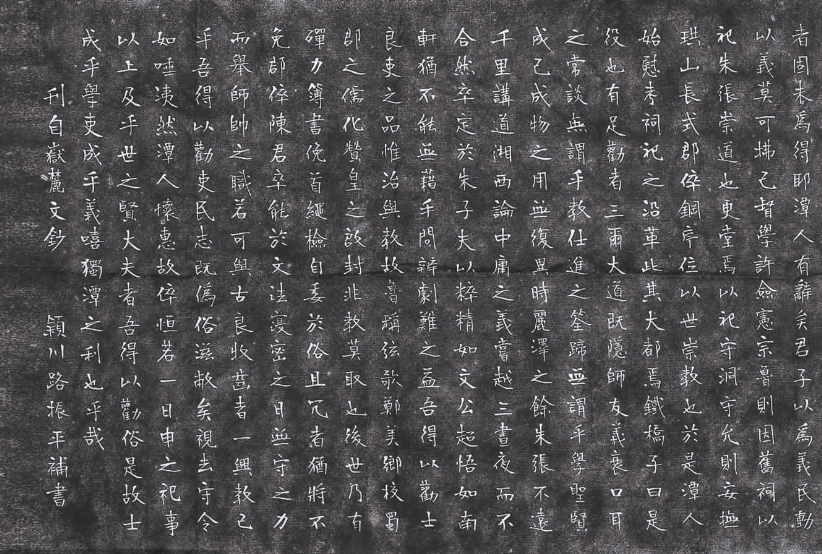 者固未爲得耶潭人有辭矣君子以爲義民動
以義莫可拂已督學許僉憲宗魯則因舊祠以
祀朱張崇道也更堂焉以祀守洞守允則安撫
珙山長式郡倅鋼序位以世崇教也於是潭人
始慰考祠祀之沿革此其大都焉鐵橋子曰是
役也有足勸者三爾大道既隱師友義衰口耳
之常談無謂乎教仕進之筌蹄無謂乎學聖賢
成己成物之用並復異時麗澤之餘朱張不遠
千里講道湘西論中庸之義嘗越三晝夜而不
合然卒定於朱子夫以粹精如文公超悟如南
軒猶不能無藉乎問辯劇難之益吾得以勸士
良吏之品惟治與教故魯稱弦歌鄭美鄉校蜀
郡之儒化贊皇之啟封非教莫取也後世乃有
殫力簿書俛首繩檢自委於俗且冗者猶將不
免郡倅陳君卒能於文法寖密之日無守之力
而舉師帥之職若可與古良牧蓋者一興教已
乎吾得以勸吏民志既僞俗滋敝矣視去守令
如唾洟然潭人懷惠故倅恒若一日申之祀事
以上及乎世之賢大夫者吾得以勸俗是故士
成乎學吏成乎義嘻獨潭之利也乎哉
刊自嶽麓文鈔 潁川路振平補書